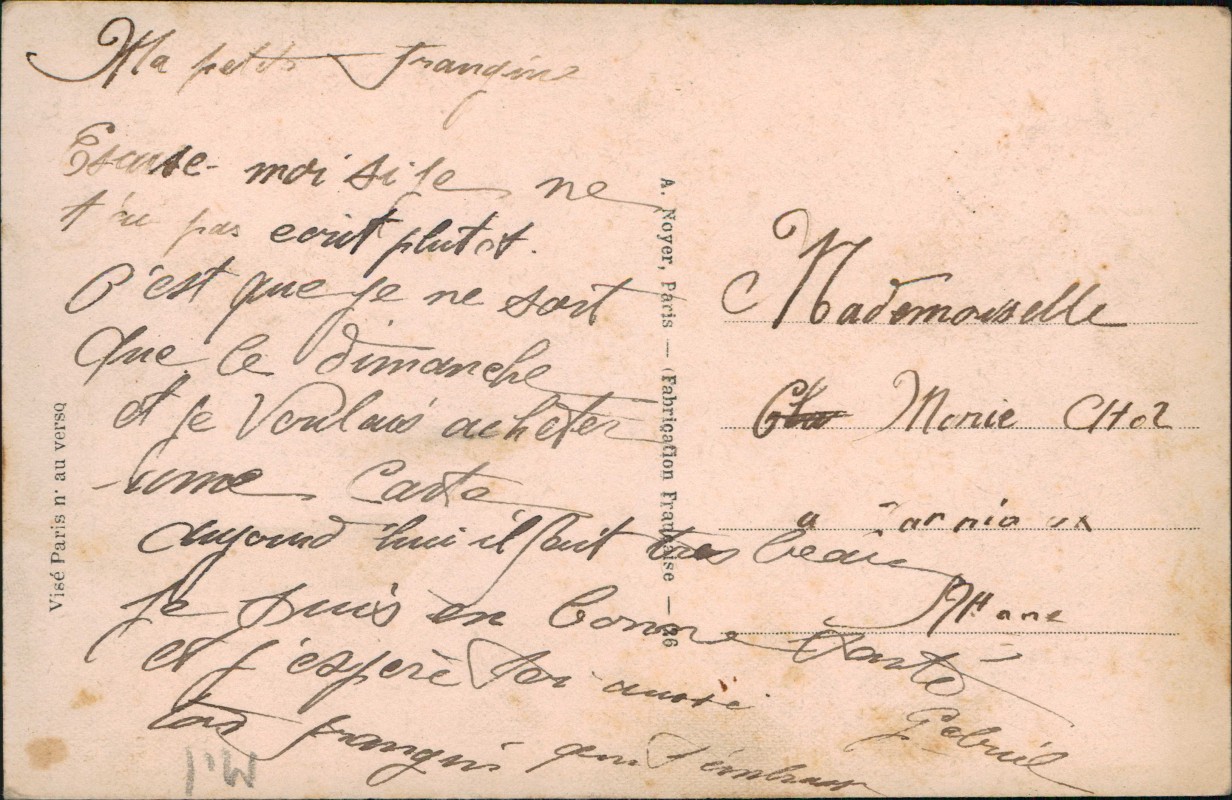 Ma petite frangine
Escuse-moi si je ne
t'ai pas ecrit plutot.
C'est que je ne sort
que le dimanche
et je voulais acheter
une Carte
aujourd'hui il fait tres beau
Je suis en bonne santé
et j'espère toi aussi
ton frangin qui t'embrasse
Gebriel
Mademoiselle
Marie
a
Marne
A. Noyer, Paris — (Fabrication Française — 26
Visé Paris n° au verso